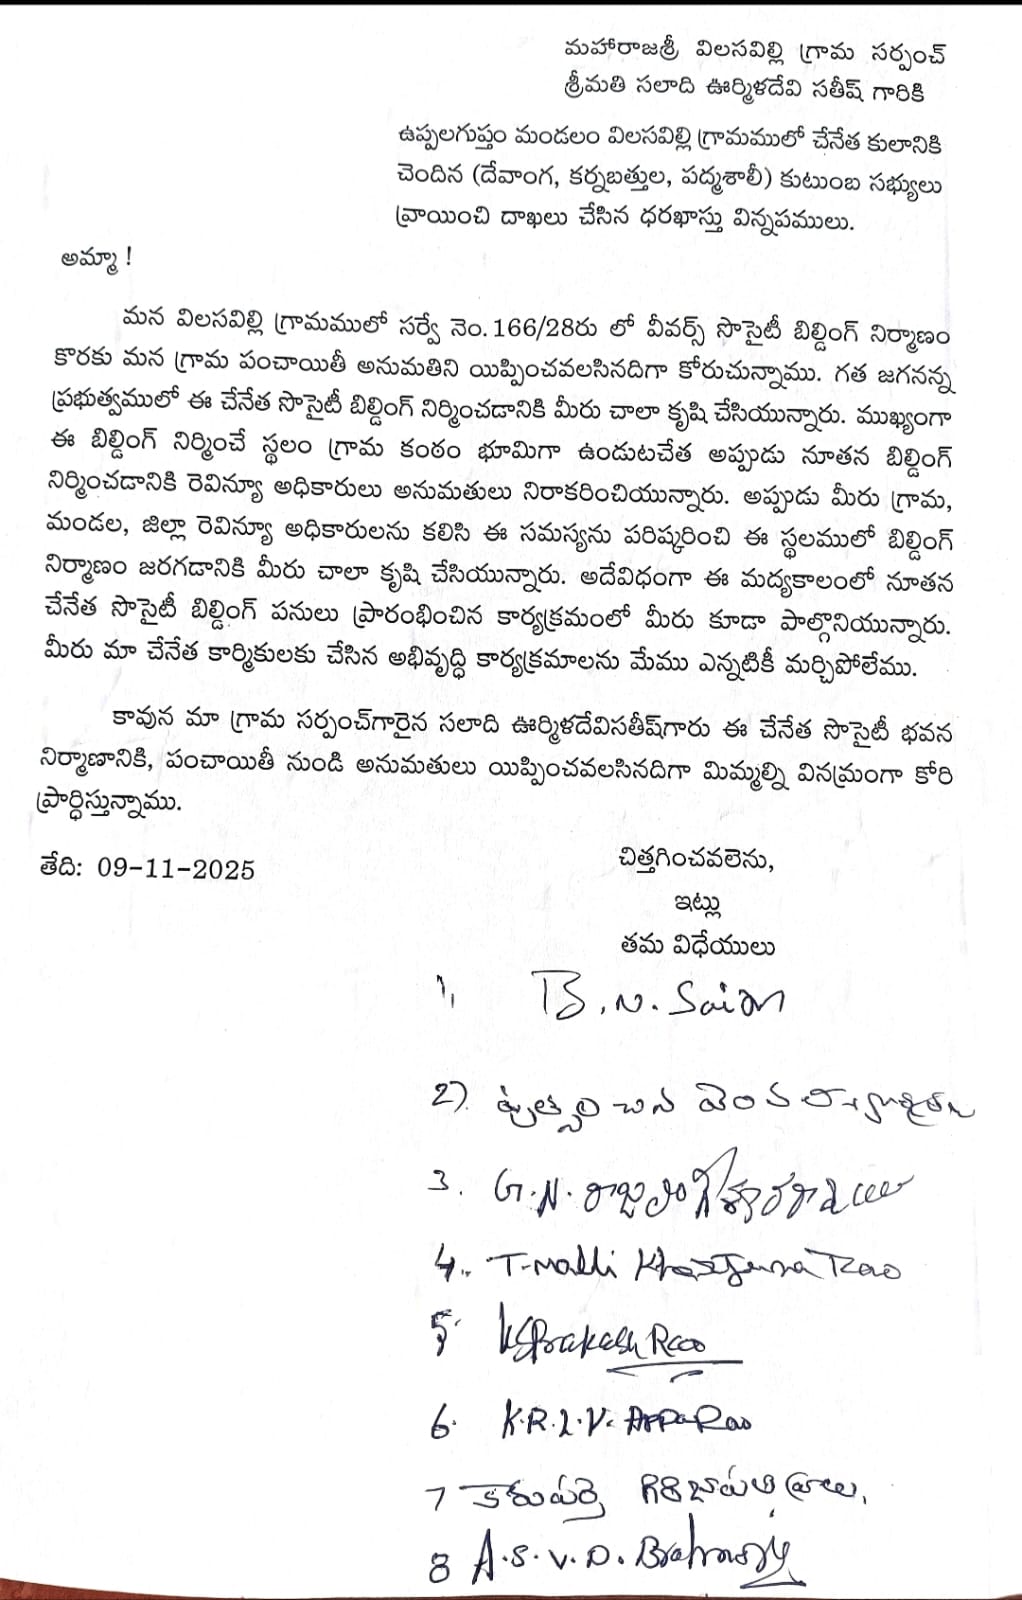 మహారాజశ్రీ విలసవిల్లి గ్రామ సర్పంచ్
శ్రీమతి సలాది ఊర్మిళదేవి సతీష్ గారికి
ఉప్పలగుప్తం మండలం విలసవిల్లి గ్రామములో చేనేత కులానికి
చెందిన (దేవాంగ, కర్నబత్తుల, పద్మశాలీ) కుటుంబ సభ్యులు
వ్రాయించి దాఖలు చేసిన ధరఖాస్తు విన్నపములు.
అమ్మా !
మన విలసవిల్లి గ్రామములో సర్వే నెం. 166/28రు లో వీవర్స్ సొసైటీ బిల్డింగ్ నిర్మాణం
కొరకు మన గ్రామ పంచాయితీ అనుమతిని యిప్పించవలసినదిగా కోరుచున్నాము. గత జగనన్న
ప్రభుత్వములో ఈ చేనేత సొసైటీ బిల్డింగ్ నిర్మించడానికి మీరు చాలా కృషి చేసియున్నారు. ముఖ్యంగా
ఈ బిల్డింగ్ నిర్మించే స్థలం గ్రామ కంఠం భూమిగా ఉండుటచేత అప్పుడు నూతన బిల్డింగ్
నిర్మించడానికి రెవిన్యూ అధికారులు అనుమతులు నిరాకరించియున్నారు. అప్పుడు మీరు గ్రామ,
మండల, జిల్లా రెవిన్యూ అధికారులను కలిసి ఈ సమస్యను పరిష్కరించి ఈ స్థలములో బిల్డింగ్
నిర్మాణం జరగడానికి మీరు చాలా కృషి చేసియున్నారు. అదేవిధంగా ఈ మద్యకాలంలో నూతన
చేనేత సొసైటీ బిల్డింగ్ పనులు ప్రారంభించిన కార్యక్రమంలో మీరు కూడా పాల్గొనియున్నారు.
మీరు మా చేనేత కార్మికులకు చేసిన అభివృద్ధి కార్యక్రమాలను మేము ఎన్నటికీ మర్చిపోలేము.
కావున మా గ్రామ సర్పంచ్‌గారైన సలాది ఊర్మిళదేవిసతీష్‌గారు ఈ చేనేత సొసైటీ భవన
నిర్మాణానికి, పంచాయితీ నుండి అనుమతులు యిప్పించవలసినదిగా మిమ్మల్ని వినమ్రంగా కోరి
ప్రార్ధిస్తున్నాము.
తేది: 09-11-2025
చిత్తగించవలెను,
ఇట్లు
తమ విధేయులు
1, B. N.
2). చిన
3. G. N.
4. T. Malli Rao
5 Prakash Rao
6. K. R. L. V. Appa Rao
7
8 A. S. V. D.